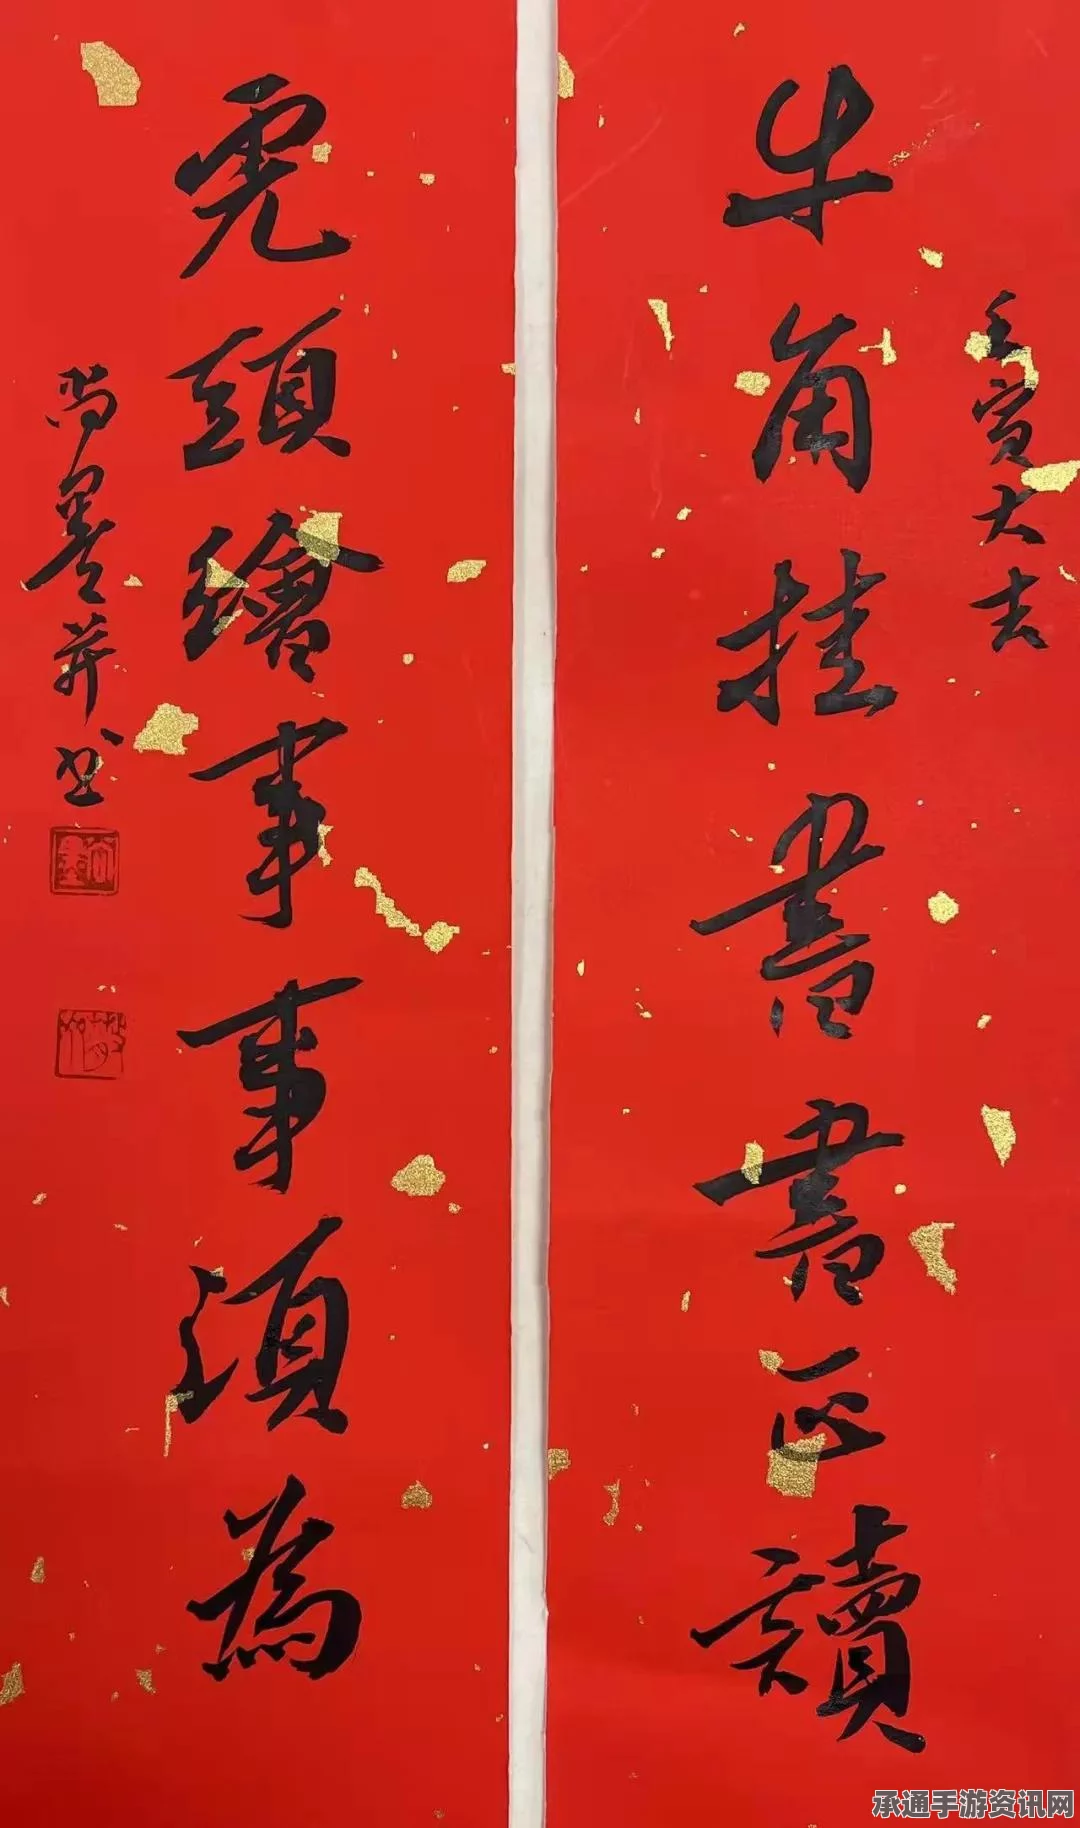 壬寅大吉
牛角挂書書正讀
虎頭繪事事須為
尚墨莽书
承通手游资讯网